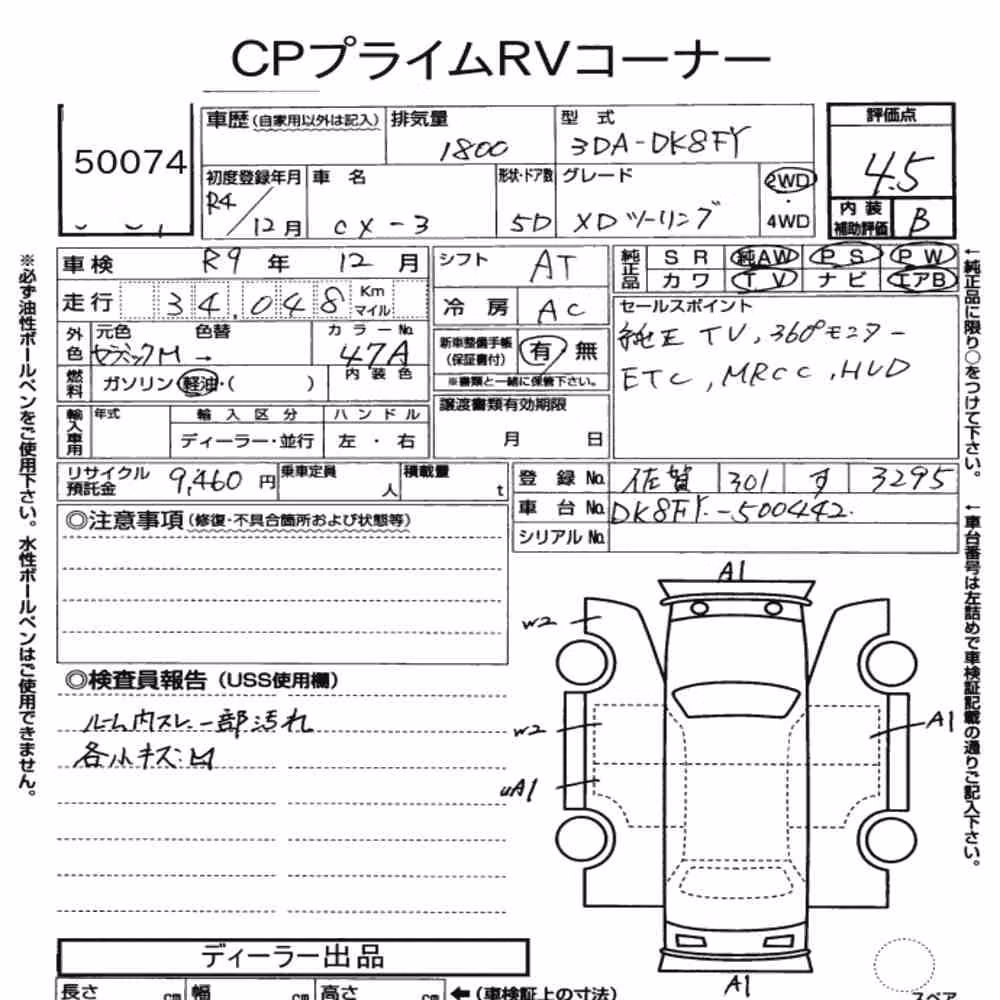 CPプライムRVコーナー
50074
車歴(自家用以外は記入) 排気量 1800 型式 3DA-DK8FY
評価点 4.5
初度登録年月 R4/12月 車名 CX-3 形状・ドア数 5D グレード XDツーリング 2WD・4WD
内装補助評価 B
車検 R9年 12月 シフト AT 純正品 SR 純AW PS PW
カワ TV ナビ エアB
走行 34,048 Km マイル 冷房 AC
セールスポイント
純正TV,360°モニター
ETC,MRCC,HUD
外色 元色 色替 カラーNo.
セラミックM → 47A
新車整備手帳(保証書付) 有 無
※書類と一緒に保管下さい。
燃料 ガソリン・軽油・( ) 内装色
輸入車用 年式 輸入区分 ハンドル
ディーラー・並行 左・右
譲渡書類有効期限
月 日
リサイクル預託金 9,460円 乗車定員 人 積載量 t
登録No. 佐賀 301 す 3295
車台No. DK8FY-500442
シリアルNo.
◎注意事項(修復・不具合箇所および状態等)
◎検査員報告(USS使用欄)
ルーム内スレ 一部汚れ
各小キズ・凹
A1
W2
W2
A1
UA1
A1
スペア
ディーラー出品
長さ cm 幅 cm 高さ cm ←(車検証上の寸法)
※必ず油性ボールペンをご使用下さい。水性ボールペンはご使用できません。
←純正品に限り○をつけて下さい。
←車台番号は左詰めで車検証記載の通りご記入下さい。